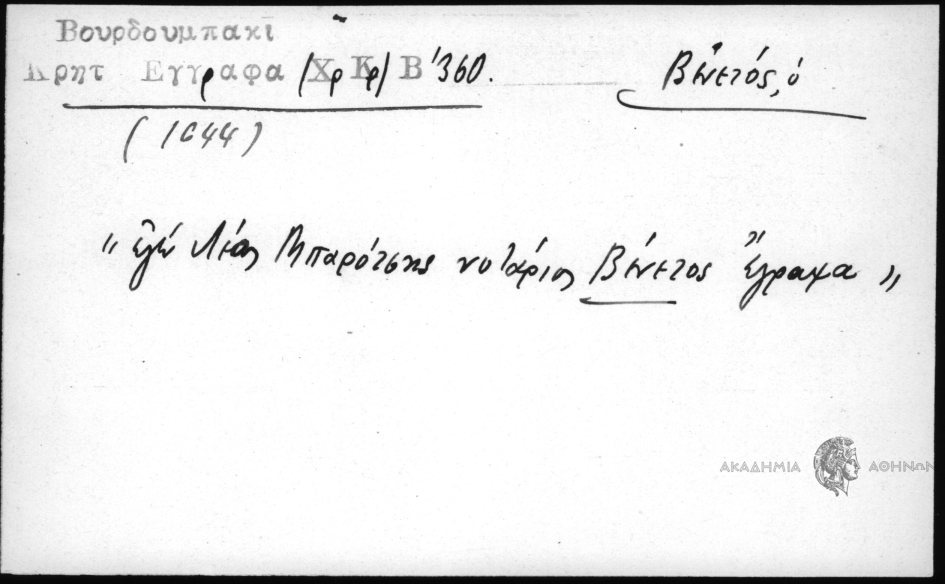 Βουρδουμπακι
Κρητ Εγγραφα (Χρ Κρ) Β´360.
Βένετός, ὁ
(1644)
"ἐγὼ Μπαρότσης νοτάριος Βένετος ἔγραψα"
ΑΚΑΔΗΜΙΑ ΑΘΗΝΩΝ